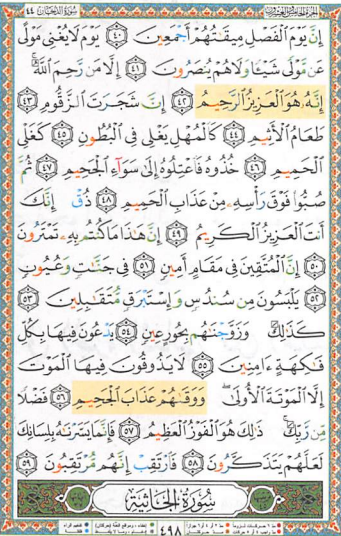 سورة الدخان ٤٤
إِنَّ يَوْمَ ٱلْفَصْلِ مِيقَٰتُهُمْ أَجْمَعِينَ ٤٠ يَوْمَ لَا يُغْنِى مَوْلًى
عَن مَّوْلًى شَيْـًٔا وَلَا هُمْ يُنصَرُونَ ٤١ إِلَّا مَن رَّحِمَ ٱللَّهُ ۚ
إِنَّهُۥ هُوَ ٱلْعَزِيزُ ٱلرَّحِيمُ ٤٢ إِنَّ شَجَرَتَ ٱلزَّقُّومِ ٤٣
طَعَامُ ٱلْأَثِيمِ ٤٤ كَٱلْمُهْلِ يَغْلِى فِى ٱلْبُطُونِ ٤٥ كَغَلْىِ
ٱلْحَمِيمِ ٤٦ خُذُوهُ فَٱعْتِلُوهُ إِلَىٰ سَوَآءِ ٱلْجَحِيمِ ٤٧ ثُمَّ
صُبُّوا۟ فَوْقَ رَأْسِهِۦ مِنْ عَذَابِ ٱلْحَمِيمِ ٤٨ ذُقْ إِنَّكَ
أَنتَ ٱلْعَزِيزُ ٱلْكَرِيمُ ٤٩ إِنَّ هَٰذَا مَا كُنتُم بِهِۦ تَمْتَرُونَ
٥٠ إِنَّ ٱلْمُتَّقِينَ فِى مَقَامٍ أَمِينٍ ٥١ فِى جَنَّٰتٍ وَعُيُونٍ
٥٢ يَلْبَسُونَ مِن سُندُسٍ وَإِسْتَبْرَقٍ مُّتَقَٰبِلِينَ ٥٣
كَذَٰلِكَ وَزَوَّجْنَٰهُم بِحُورٍ عِينٍ ٥٤ يَدْعُونَ فِيهَا بِكُلِّ
فَٰكِهَةٍ ءَامِنِينَ ٥٥ لَا يَذُوقُونَ فِيهَا ٱلْمَوْتَ
إِلَّا ٱلْمَوْتَةَ ٱلْأُولَىٰ ۖ وَوَقَىٰهُمْ عَذَابَ ٱلْجَحِيمِ ٥٦ فَضْلًا
مِّن رَّبِّكَ ۚ ذَٰلِكَ هُوَ ٱلْفَوْزُ ٱلْعَظِيمُ ٥٧ فَإِنَّمَا يَسَّرْنَٰهُ بِلِسَانِكَ
لَعَلَّهُمْ يَتَذَكَّرُونَ ٥٨ فَٱرْتَقِبْ إِنَّهُم مُّرْتَقِبُونَ ٥٩
سُورَةُ الجَاثِيَة
٤٩٨